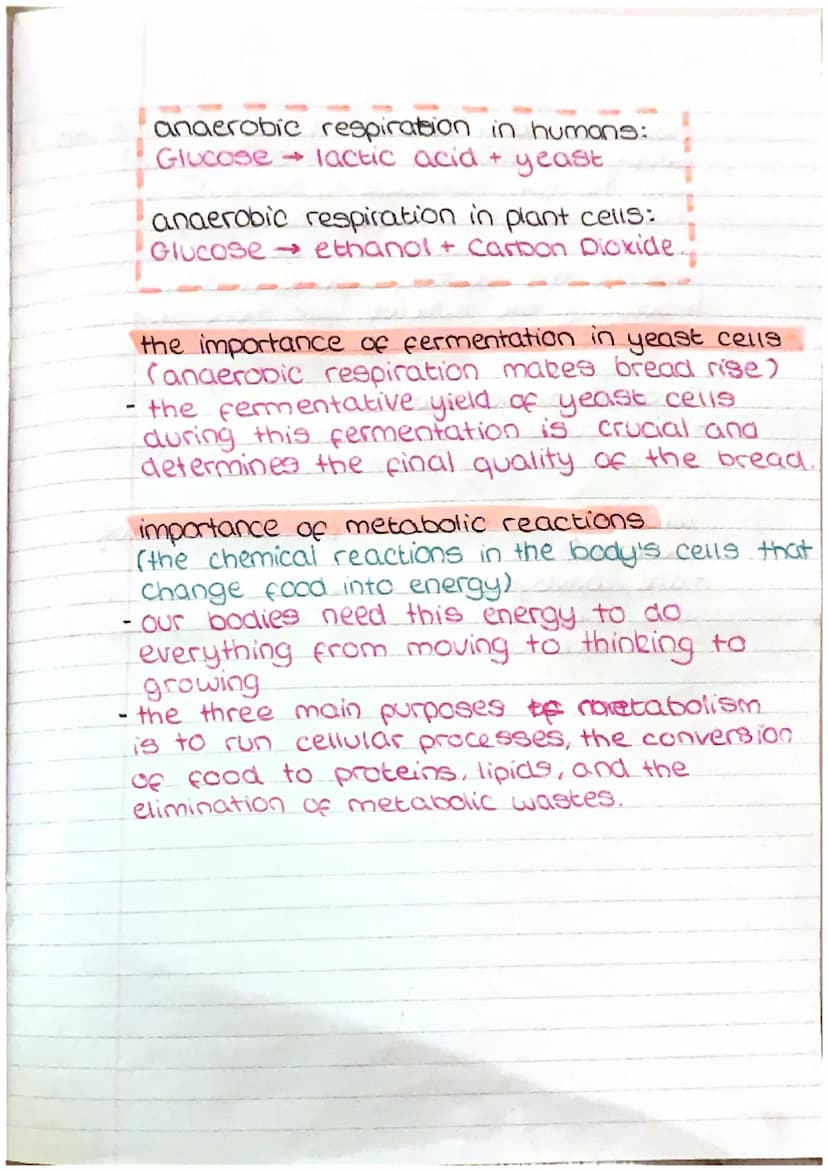 anaerobic respiration in humans:
Glucose → lactic acid + yeast
anaerobic respiration in plant cells:
Glucose → ethanol + Carbon Dioxide.
the importance of fermentation in yeast cells
(anaerobic respiration makes bread rise)
- the fermentative yield of yeast cells
during this fermentation is crucial and
determines the final quality of the bread.
importance of metabolic reactions
(the chemical reactions in the body's cells that
change food into energy)
- our bodies need this energy to do
everything from moving to thinking to
growing
- the three main purposes metabolism
is to run cellular processes, the conversion
of food to proteins, lipids, and the
elimination of metabolic wastes.